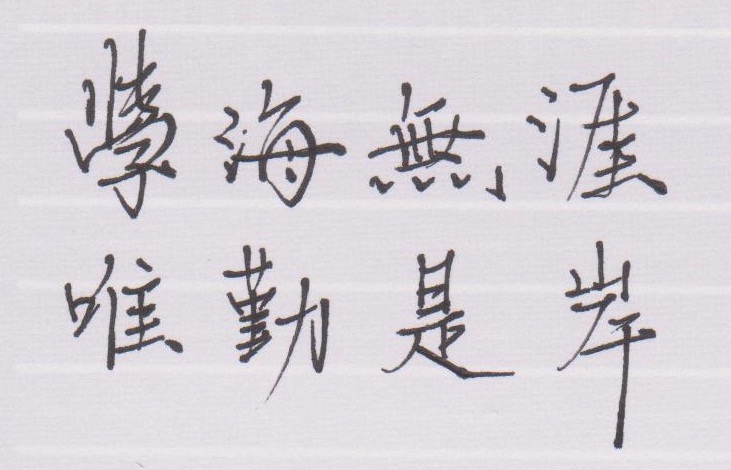 學海無涯
唯勤是岸